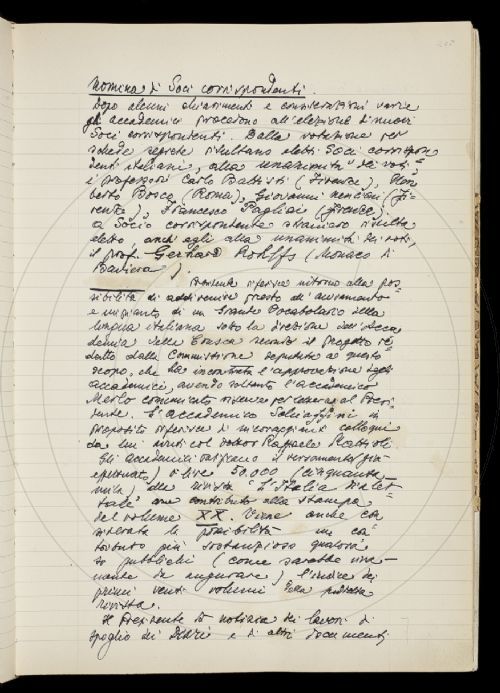 Nomina di Soci corrispondenti.
Dopo alcuni chiarimenti e considerazioni varie
gli accademici procedono all'elezione di nuovi
Soci corrispondenti. Dalla votazione per
schede segrete risultano eletti Soci corrispon
denti italiani, alla unanimità dei voti
i professori Carlo Battisti (Firenze), Um
berto Bosco (Roma), Giovanni Nencioni (Fi-
renze), Francesco Pagliai (Firenze);
a Socio corrispondente straniero risulta
eletto anch'egli alla unanimità dei voti,
il prof. Gerhard Rohlfs (Monaco di
Baviera).
Presidente riferisce intorno alla pos-
sibilità di addivenire presto all'avviamento
e impianto di un Grande Vocabolario della
lingua italiana sotto la direzione dell'Acca
demia della Crusca secondo il progetto re
datto dalla Commissione deputata a questo
scopo, che ha incontrato l'approvazione degli
accademici, avendo soltanto l'accademico
Merlo comunicato riserve per lettera al Presi
dente. L'accademico Schiaffini in
proposito riferisce di incoraggianti colloqui
da lui avuti col dottor Raffaele Mattioli.
Gli accademici ratificano il versamento (già
effettuato) di lire 50.000 (cinquanta
mila) alla rivista "L'Italia dialet-
tale" come contributo alla stampa
del volume XX. Viene anche con
siderata la possibilità di un con
tributo più sostanzioso qualora
si pubblichi (come sarebbe viva-
mente da augurare) l'indice dei
primi venti volumi della predetta
rivista.
Il Presidente dà notizia dei lavori di
spoglio di e di altri documenti